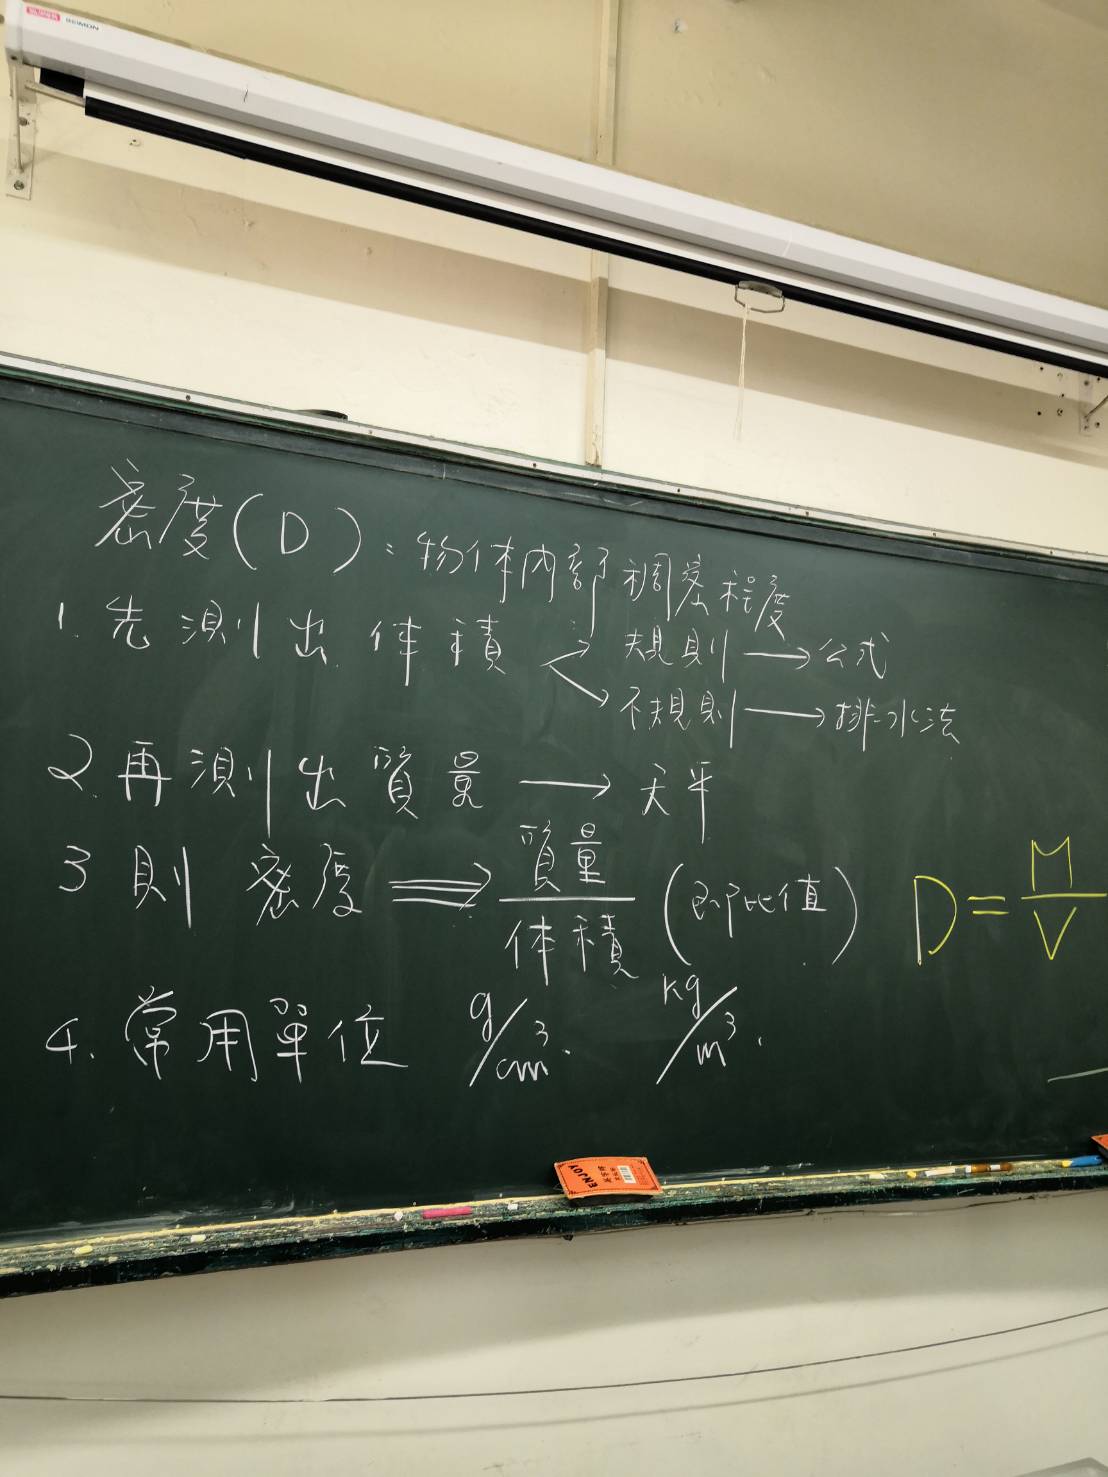 密度(D):物体內部稠密程度
1.先測出体積
規則→公式
不規則→排水法
2.再測出質量→天平
3則密度⇒質量/体積(即比值) D=M/V
4.常用單位 g/cm³. kg/m³.
ENJOY